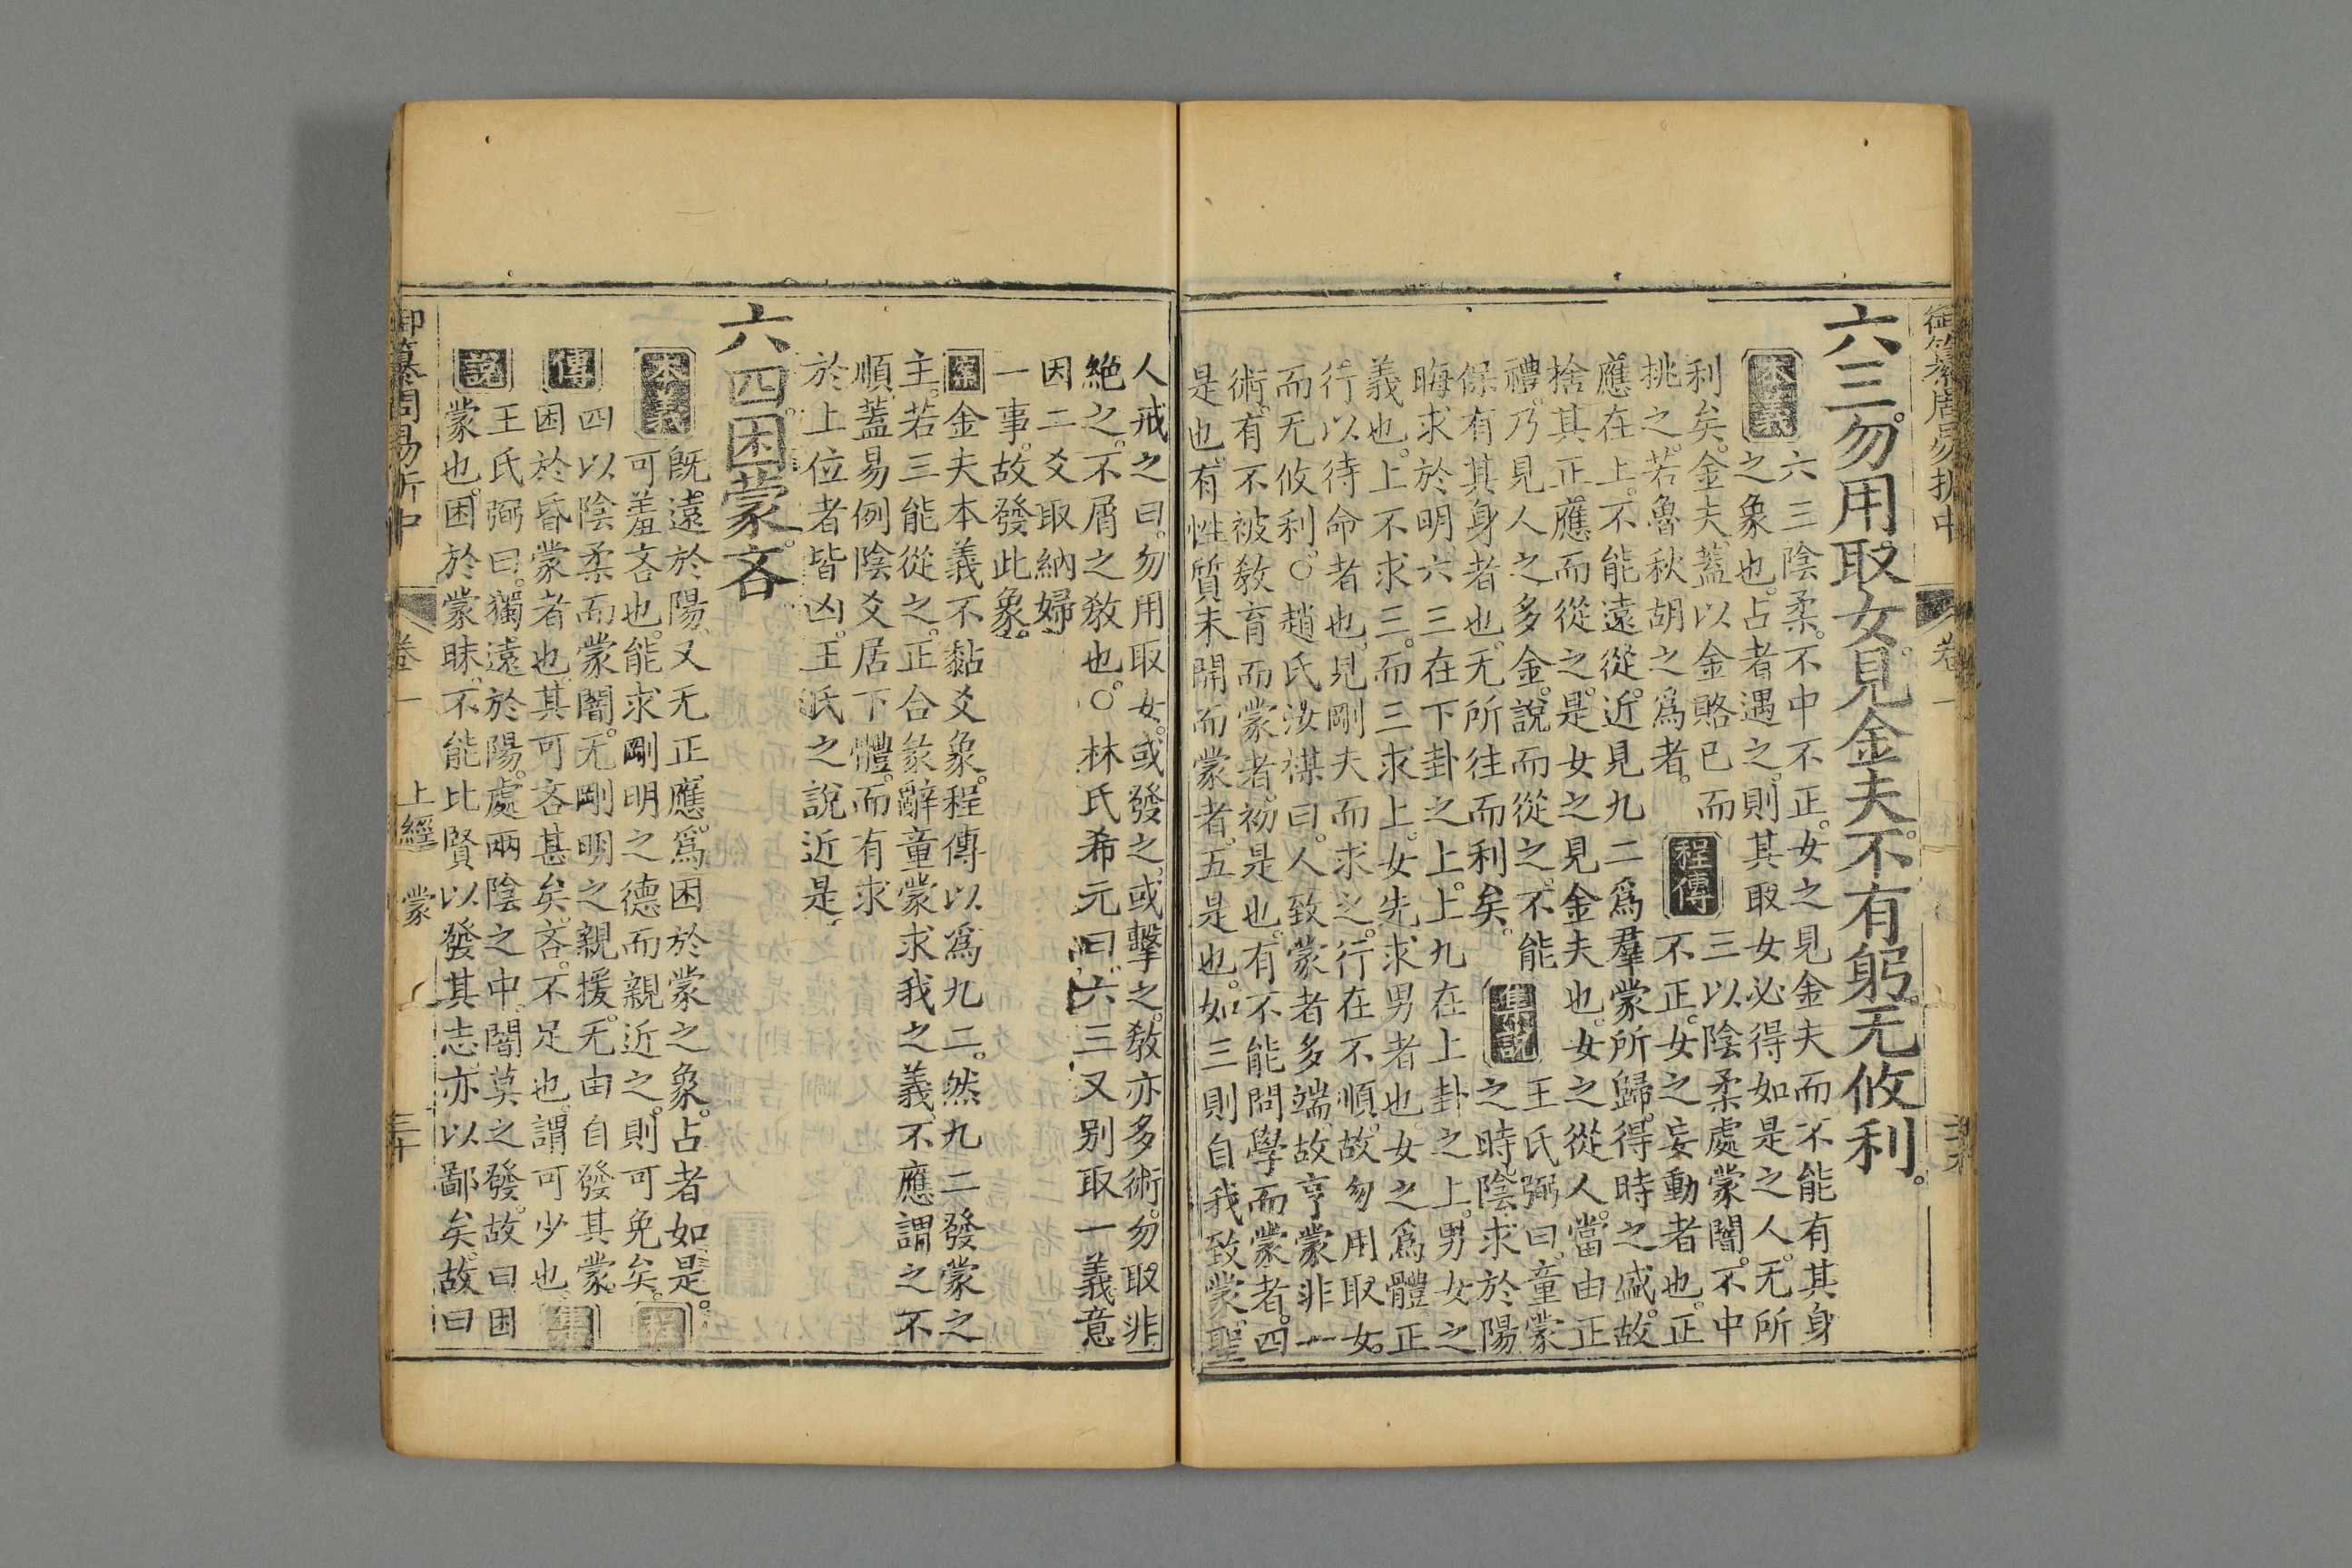 御纂周易折中 卷一
六三。勿用取女。見金夫。不有躬。无攸利。
本義
六三陰柔。不中不正。女之見金夫而不能有其身
之象也。占者遇之。則其取女必得如是之人。无所
利矣。金夫。蓋以金賂己而
挑之。若魯秋胡之爲者。
程傳
三以陰柔處蒙闇。不中
不正。女之妄動者也。正
應在上。不能遠從。近見九二爲羣蒙所歸。得時之盛。故
捨其正應而從之。是女之見金夫也。女之從人。當由正
禮。乃見人之多金。說而從之。不能
保有其身者也。无所往而利矣。
集說
王氏弼曰。童蒙
之時。陰求於陽
晦求於明。六三在下卦之上。上九在上卦之上。男女之
義也。上不求三。而三求上。女先求男者也。女之爲體。正
行以待命者也。見剛夫而求之。行在不順。故勿用取女。
而无攸利。○趙氏汝楳曰。人致蒙者多端。故亨蒙非一
術。有不被教育而蒙者。初是也。有不能問學而蒙者。四
是也。有性質未開而蒙者。五是也。如三則自我致蒙。聖
人戒之曰。勿用取女。或發之。或擊之。教亦多術。勿取非
絕之。不屑之教也。○林氏希元曰。六三又別取一義。意
因二爻取納婦
一事。故發此象。
案
金夫本義不黏爻象。程傳以爲九二。然九二發蒙之
主。若三能從之。正合彖辭童蒙求我之義。不應謂之不
順。蓋易例陰爻居下體。而有求
於上位者皆凶。王氏之說近是。
六四。困蒙。吝。
本義
旣遠於陽。又无正應。爲困於蒙之象。占者如是。
可羞吝也。能求剛明之德而親近之。則可免矣。
程
傳
四以陰柔而蒙闇。无剛明之親援。无由自發其蒙。
困於昏蒙者也。其可吝甚矣。吝。不足也。謂可少也。
集
說
王氏弼曰。獨遠於陽。處兩陰之中。闇莫之發。故曰困
蒙也。困於蒙昧。不能比賢以發其志。亦以鄙矣。故曰
御纂周易折中 卷一 上經 蒙 三十